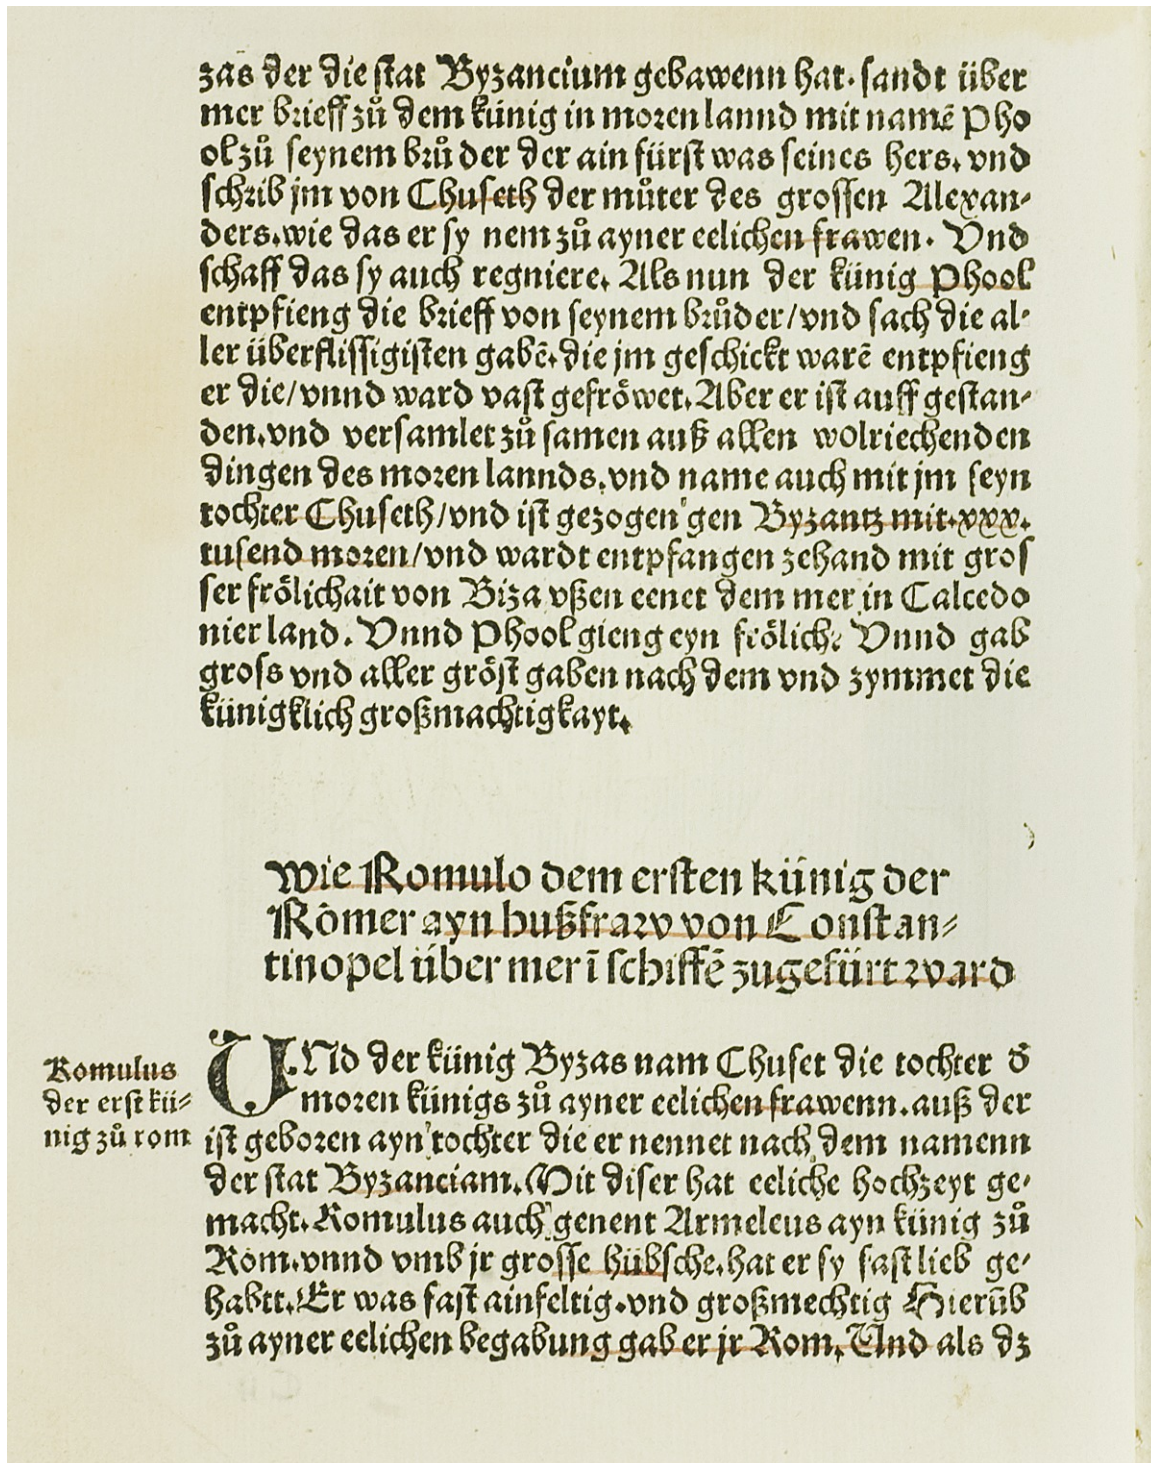 zas der die stat Byzancium gebawenn hat. sandt über
mer brieff zů dem künig in moren lannd mit namē Pho
ol zů seynem brůder der ain fürst was seines hers. vnd
schrib jm von Chuseth der můter des grossen Alexan-
ders. wie das er sy nem zů ayner eelichen frawen. Vnd
schaff das sy auch regniere. Als nun der künig Phool
entpfieng die brieff von seynem brůder/vnd sach die al-
ler überflissigisten gabē. die jm geschickt warē entpfieng
er die/vnnd ward vast gefröwet. Aber er ist auff gestan-
den. vnd versamlet zů samen auß allen wolriechenden
dingen des moren lannds. vnd name auch mit jm seyn
tochter Chuseth/vnd ist gezogen gen Byzantz mit.xxx.
tusend moren/vnd wardt entpfangen zehand mit gros
ser frölichait von Biza vßen eenet dem mer in Calcedo
nier land. Vnnd Phool gieng eyn frölich: Vnnd gab
gross vnd aller gröst gaben nach dem vnd zymmet die
künigklich großmachtigkayt.
Wie Romulo dem ersten künig der
Römer ayn hußfraw von Constan-
tinopel über mer ī schiffē zugefürt ward
Romulus
der erst kü-
nig zů rom
VNd der künig Byzas nam Chuset die tochter đ
moren künigs zů ayner eelichen frawenn. auß der
ist geboren ayn tochter die er nennet nach dem namenn
der stat Byzanciam. Mit diser hat eeliche hochzeyt ge-
macht. Romulus auch genent Armeleus ayn künig zů
Rom. vnnd vmb jr grosse hübsche. hat er sy fast lieb ge-
habtt. Er was fast ainfeltig. vnd großmechtig Hierūb
zů ayner eelichen begabung gab er jr Rom. Und als dz